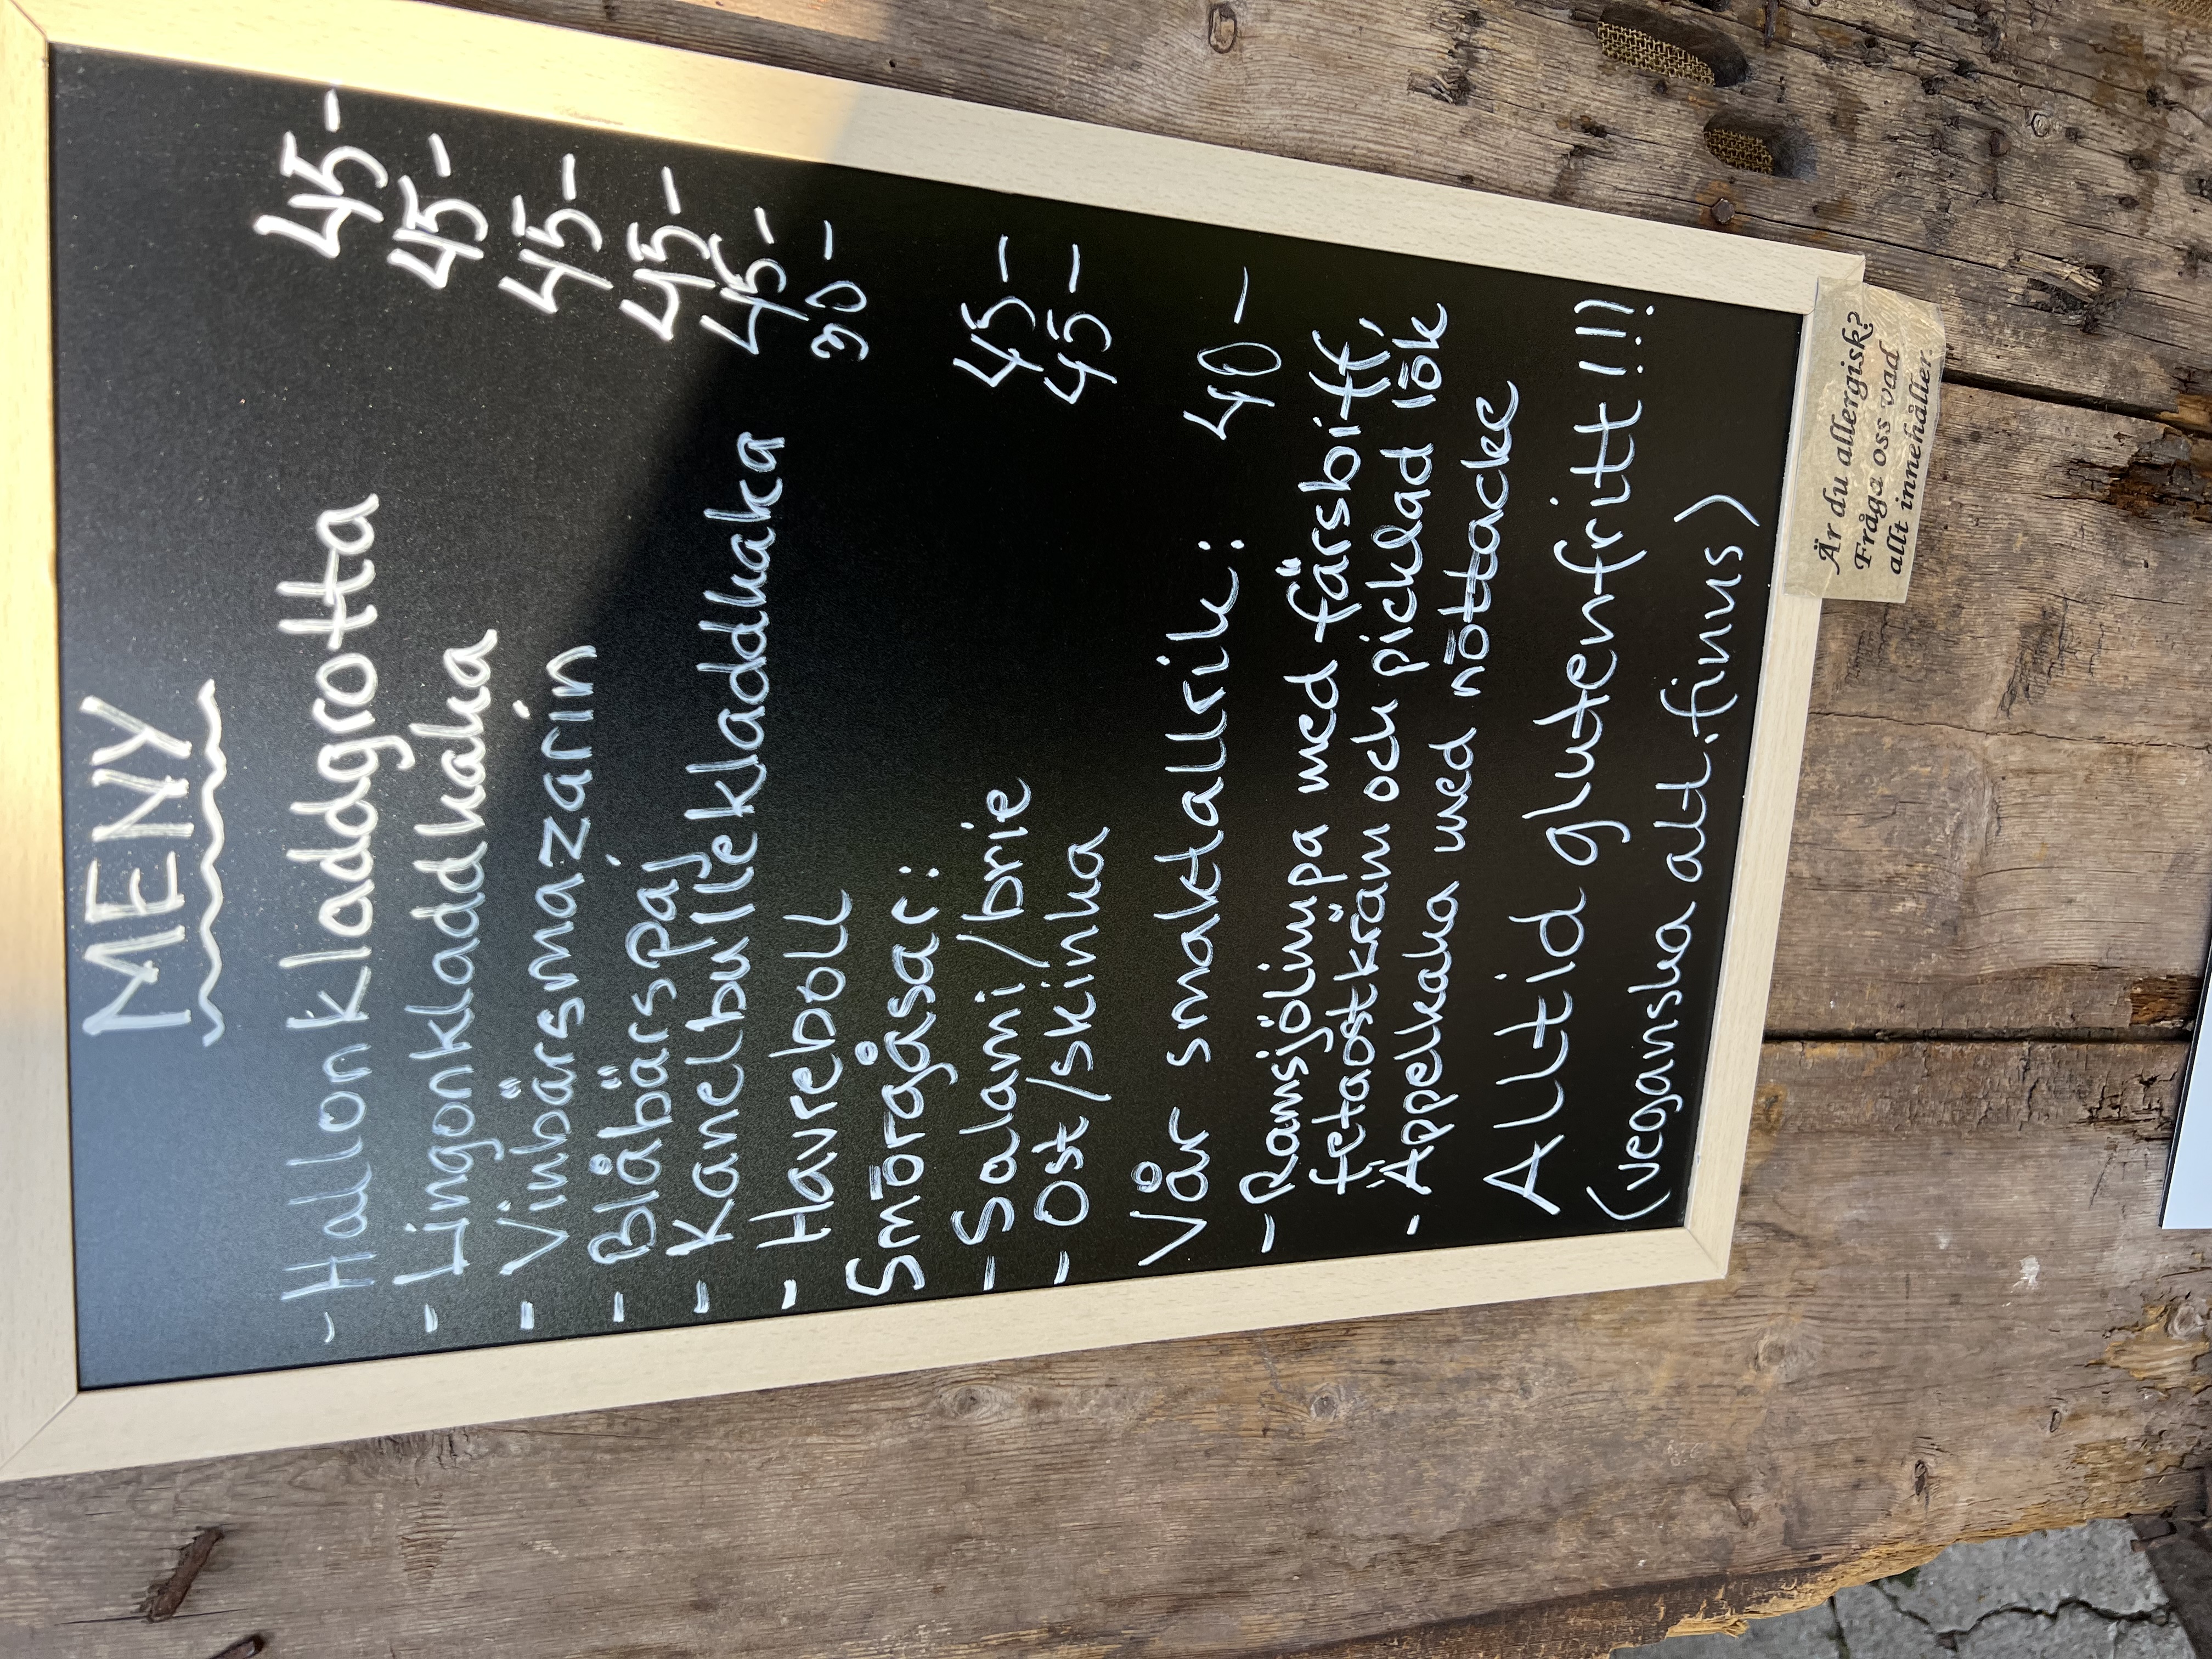 MENY
- Hallonkladdgrotta 45-
- Lingonkladdkaka 45-
- Vinbärsmazarin 45-
- Blåbärspaj 45-
- Kanelbullekladdkaka 45-
- Havreboll 30-
Smörgåsar:
- Salami/brie 45-
- Ost/skinka 45-
Vår smaktallrik: 40-
- Ramsjölimpa med färsbiff,
fetaostkräm och picklad lök
- Äppelkaka med nöttäcke
Alltid glutenfritt!!!
(veganska alt. finns)
Är du allergisk?
Fråga oss vad
allt innehåller.